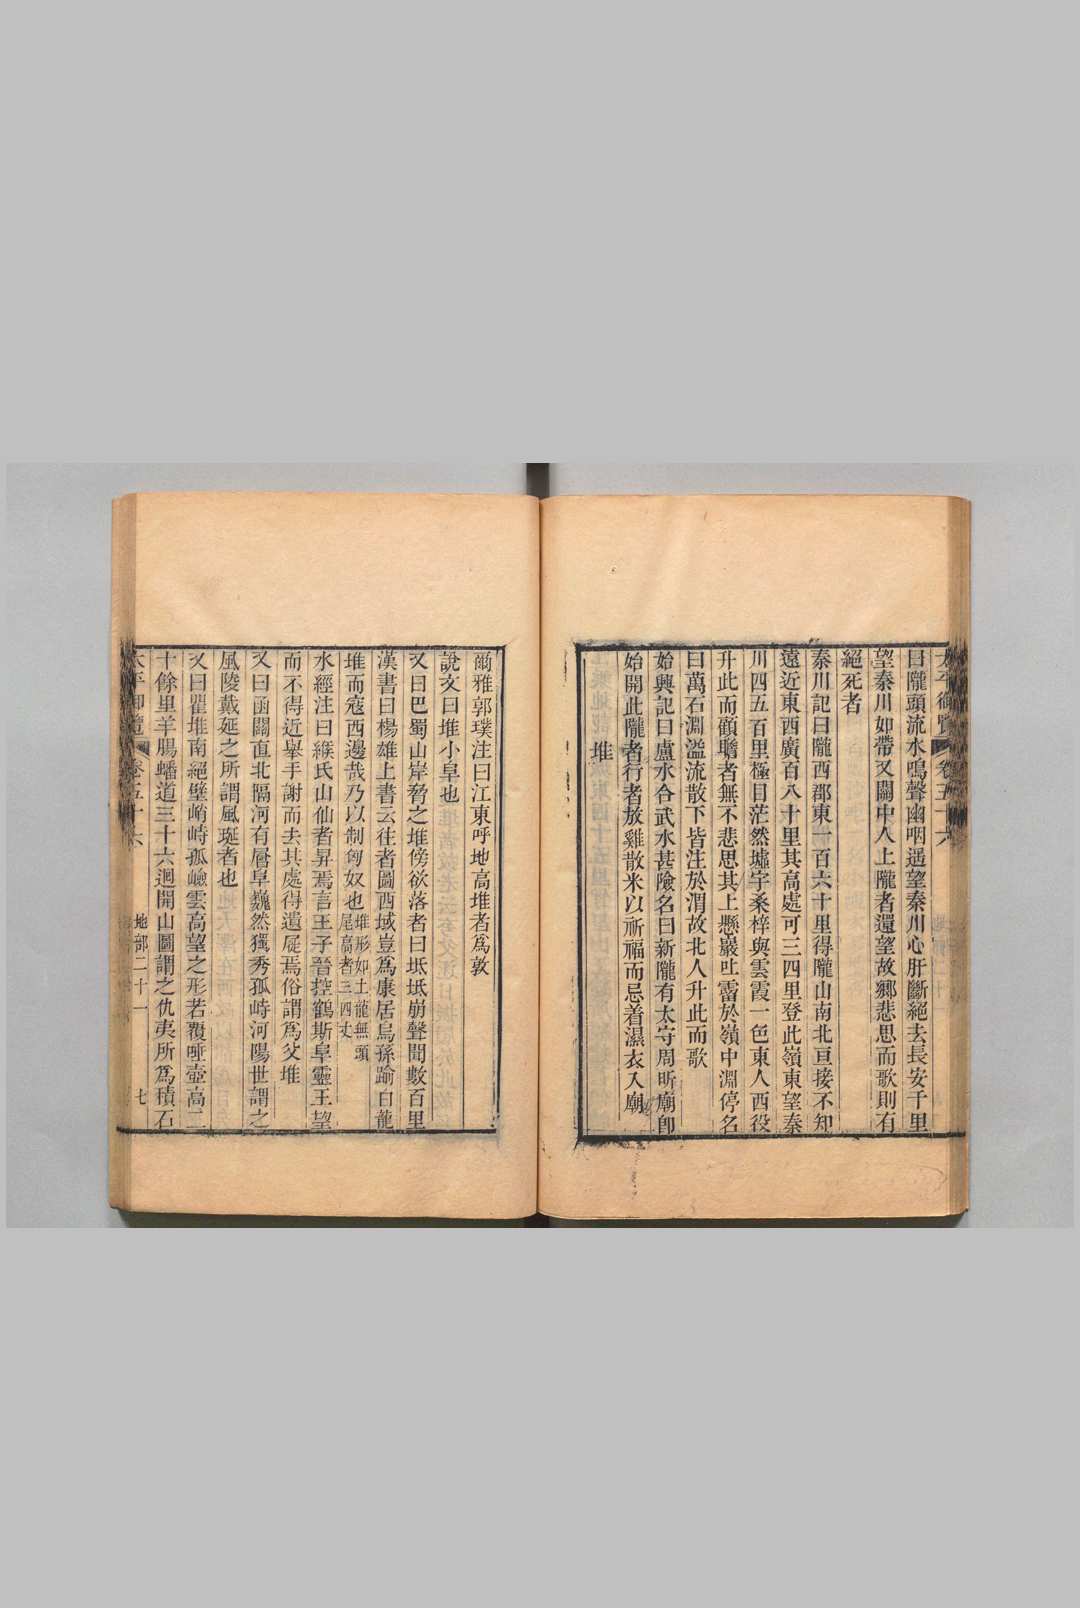 太平御覽 卷五十六
曰隴頭流水鳴聲幽咽遥望秦川心肝斷絕去長安千里
望秦川如帶又關中人上隴者還望故鄉悲思而歌則有
絕死者
秦川記曰隴西郡東一百六十里得隴山南北亘接不知
遠近東西廣百八十里其高處可三四里登此嶺東望秦
川四五百里極目茫然墟宇桑梓與雲霞一色東人西役
升此而顧瞻者無不悲思其上懸巖吐霤於嶺中淵停名
曰萬石淵溢流散下皆注於渭故北人升此而歌
始興記曰盧水合武水甚險名曰新隴有太守周昕廟卽
始開此隴者行者放雞散米以祈福而忌着濕衣入廟
堆
爾雅郭璞注曰江東呼地高堆者爲敦
說文曰堆小阜也
又曰巴蜀山岸脅之堆傍欲落者曰坻坻崩聲聞數百里
漢書曰楊雄上書云往者圖西域豈爲康居烏孫踰白龍
堆而寇西邊哉乃以制匈奴也堆形如土龍無頭尾高者三四丈
水經注曰緱氏山仙者昇焉言王子晉控鶴斯阜靈王望
而不得近舉手謝而去其處得遺屣焉俗謂爲父堆
又曰函關直北隔河有層阜巍然獨秀孤峙河陽世謂之
風陵戴延之所謂風堆者也
又曰瞿堆南絕壁峭峙孤嶮雲高望之形若覆唾壺高二
十餘里羊腸蟠道三十六迴開山圖謂之仇夷所爲積石
太平御覽 卷五十六 地部二十一 七